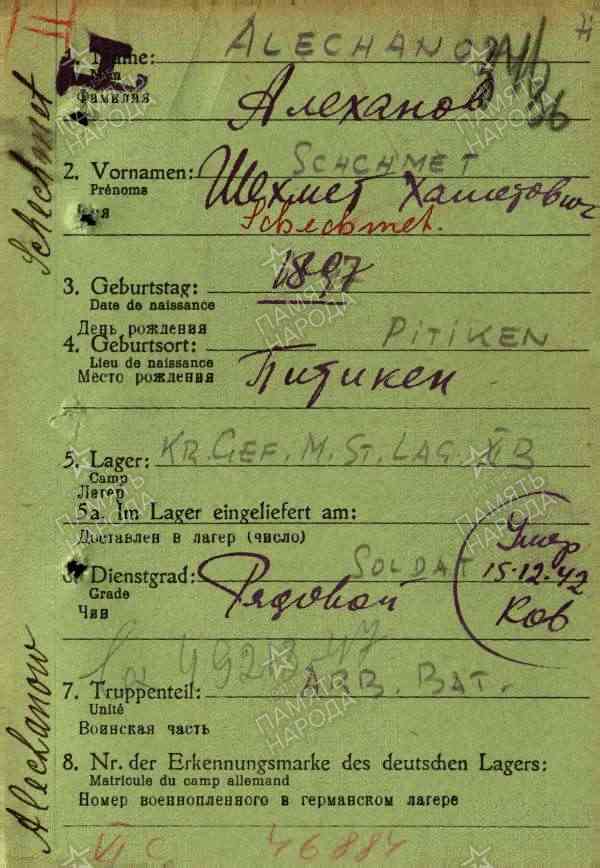 II
ALECHANOW
1. Name:
Nom
Фамилия
Алеханов
Schechmet
SCHCHMET
2. Vornamen:
Prénoms
Имя
Шехмет Хаметович
Schechmet.
3. Geburtstag: 1897
Date de naissance
День рождения
PITIKEN
4. Geburtsort:
Lieu de naissance
Место рождения
Питикен
5. Lager: KR. GEF. M. ST. LAG. XI B
Camp
Лагерь
5a. Im Lager eingeliefert am:
Доставлен в лагер (число)
Умер
15-12-42
Ков
6. Dienstgrad: SOLDAT
Grade
Чин
Рядовой
7. Truppenteil: ARB. BAT.
Unité
Воинская часть
Alechanow
8. Nr. der Erkennungsmarke des deutschen Lagers:
Matricule du camp allemand
Номер военнопленного в германском лагере
VI C 46884
ПАМЯТЬ
НАРОДА